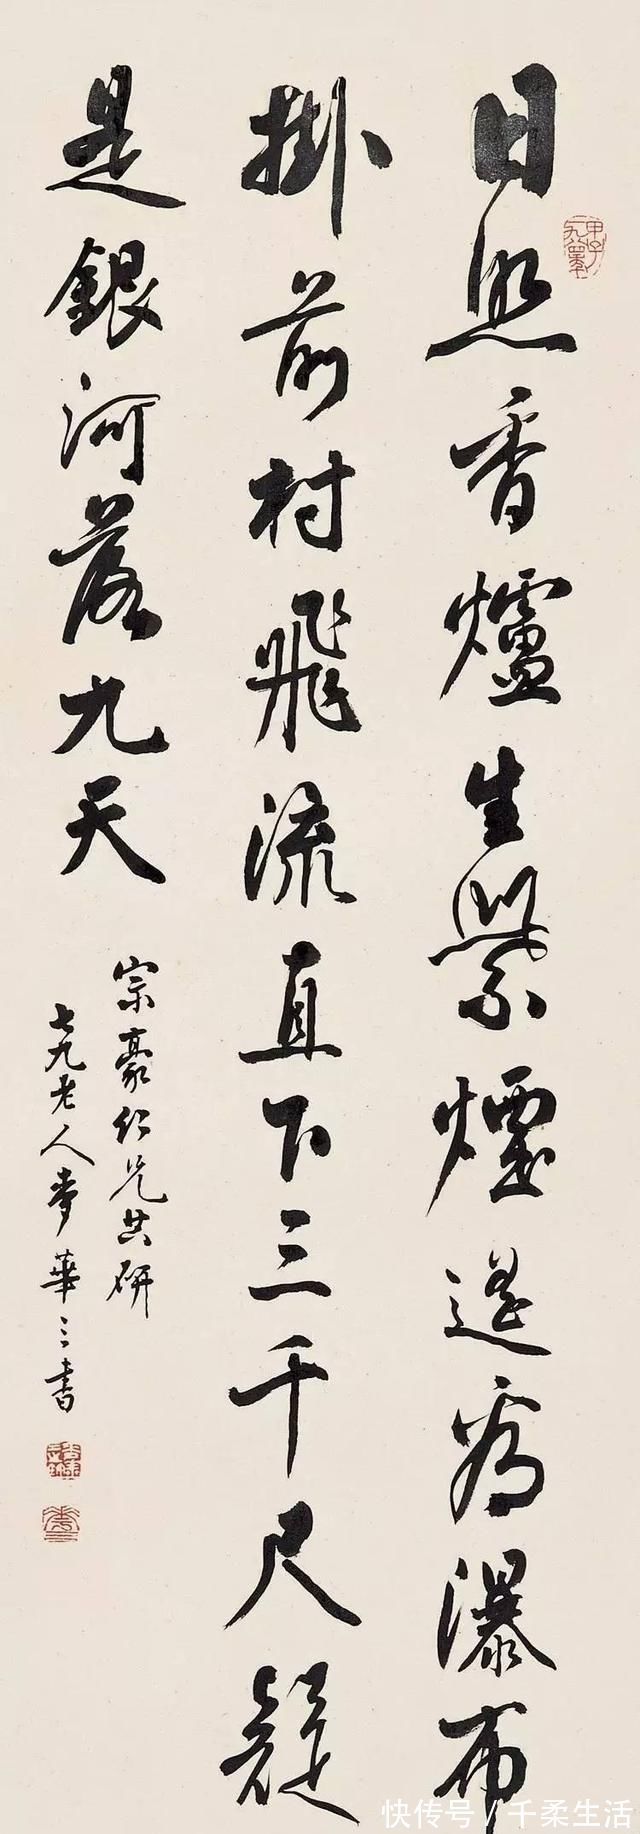 日照香爐生紫煙遙看瀑布
掛前村飛流直下三千尺疑
是銀河落九天
宗豪仁兄共研
七九老人麥華三書
快传号/千柔生活